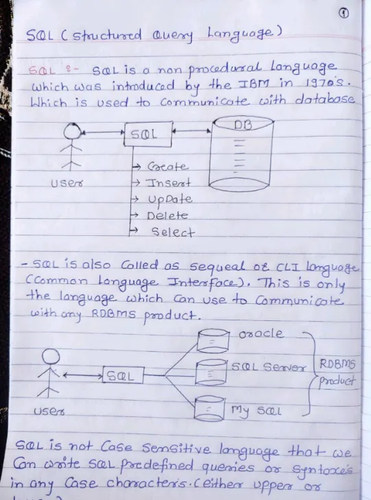 1
SQL (Structured Query Language)
SQL :- SQL is a non procedural Language
which was introduced by the IBM in 1970's.
Which is used to Communicate with database
DB
SQL
user
→ Create
→ Insert
→ UpDate
→ Delete
→ Select
- SQL is also Called as sequeal or CLI language
(Common Language Interface). This is only
the language which Can use to Communicate
with any RDBMS product.
oracle
SQL SerVer
RDBMS
product
SQL
user
My SQL
SQL is not Case Sensitive language that we
Can write SQL predefined queries or Syntaxes
in any Case characters. (either upper or